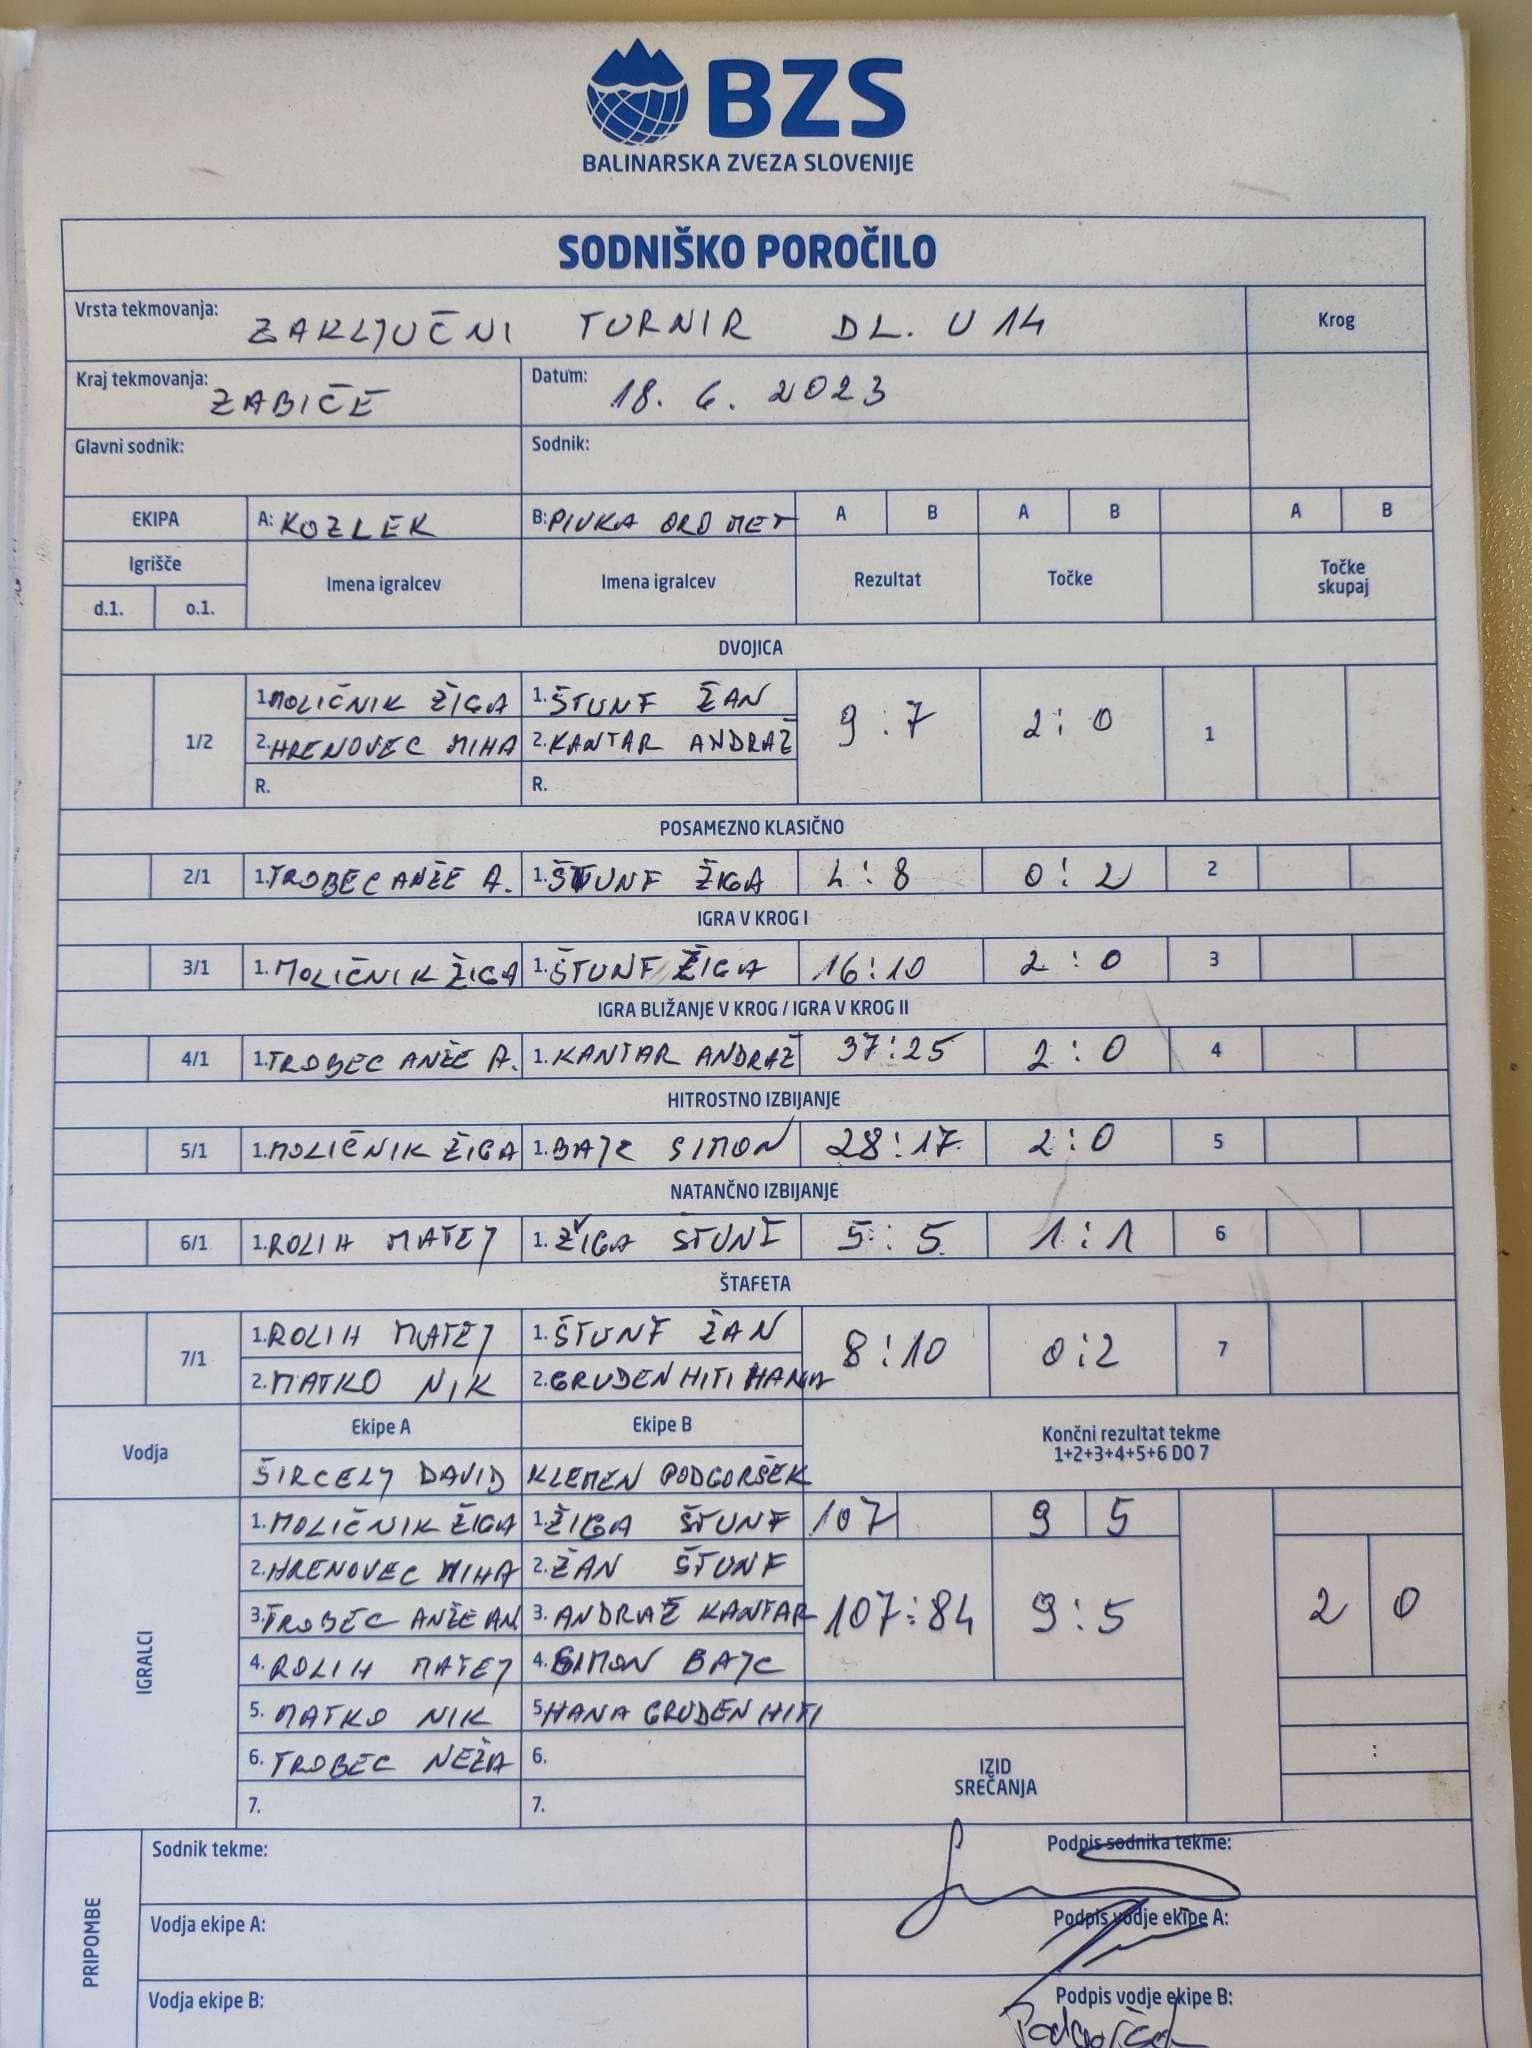 BZS
BALINARSKA ZVEZA SLOVENIJE
SODNIŠKO POROČILO
Vrsta tekmovanja: ZAKLJUČNI TURNIR DL. U 14 Krog
Kraj tekmovanja: ZABIČE Datum: 18. 6. 2023
Glavni sodnik: Sodnik:
EKIPA A: KOZLEK B: PIVKA ORO MET A B A B A B
Igrišče Imena igralcev Imena igralcev Rezultat Točke Točke skupaj
d.1. o.1.
DVOJICA
1. MOLIČNIK ŽIGA 1. ŠTUNF ŽAN
1/2 2. HRENOVEC MIHA 2. KANTAR ANDRAŽ 9 : 7 2 : 0 1
R. R.
POSAMEZNO KLASIČNO
2/1 1. TROBEC ANŽE A. 1. ŠTUNF ŽIGA 4 : 8 0 : 2 2
IGRA V KROG I
3/1 1. MOLIČNIK ŽIGA 1. ŠTUNF ŽIGA 16 : 10 2 : 0 3
IGRA BLIŽANJE V KROG / IGRA V KROG II
4/1 1. TROBEC ANŽE A. 1. KANTAR ANDRAŽ 37 : 25 2 : 0 4
HITROSTNO IZBIJANJE
5/1 1. MOLIČNIK ŽIGA 1. BAJC SIMON 28 : 17 2 : 0 5
NATANČNO IZBIJANJE
6/1 1. ROLIH MATEJ 1. ŽIGA ŠTUNF 5 : 5 1 : 1 6
ŠTAFETA
1. ROLIH MATEJ 1. ŠTUNF ŽAN
7/1 2. MATKO NIK 2. GRUDEN HITI HANA 8 : 10 0 : 2 7
Vodja Ekipe A Ekipe B Končni rezultat tekme
1+2+3+4+5+6 DO 7
ŠIRCELJ DAVID KLEMEN PODGORŠEK
IGRALCI
1. MOLIČNIK ŽIGA 1. ŽIGA ŠTUNF 107 9 5
2. HRENOVEC MIHA 2. ŽAN ŠTUNF
3. TROBEC ANŽE AN 3. ANDRAŽ KANTAR 107 : 84 9 : 5 2 0
4. ROLIH MATEJ 4. SIMON BAJC
5. MATKO NIK 5. HANA GRUDEN HITI
6. TROBEC NEŽA 6. IZID SREČANJA :
7. 7.
PRIPOMBE
Sodnik tekme: Podpis sodnika tekme:
Vodja ekipe A: Podpis vodje ekipe A:
Vodja ekipe B: Podpis vodje ekipe B: